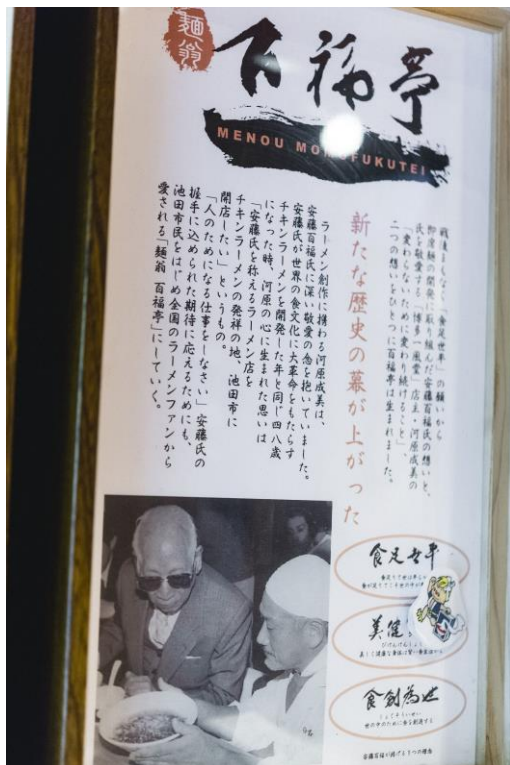 麺翁
百福亭
MENOU MOMOFUKUTEI
戦後まもなく「食足世平」の願いから
即席麺の開発に取り組んだ安藤百福氏の想いと、
氏を敬愛する「博多一風堂」店主・河原成美の
「変わらないために変わり続けること」、
二つの想いをひとつに百福亭は生まれました。
新たな歴史の幕が上がった
ラーメン創作に携わる河原成美は、
安藤百福氏に深い敬愛の念を抱いていました。
安藤氏が世界の食文化に大革命をもたらす
チキンラーメンを開発した年と同じ四八歳
になった時、河原の心に生まれた思いは
「安藤氏を称えるラーメン店を
チキンラーメンの発祥の地、池田市に
開店したい」というもの。
「人のためになる仕事をしなさい」安藤氏の
握手に込められた期待に応えるためにも、
池田市民をはじめ全国のラーメンファンから
愛される「麺翁 百福亭」にしていく。
食足世平
美健
美しく健康な身体は賢い食生活から
食創為世
しょくそういせい
世の中のために食を創造する